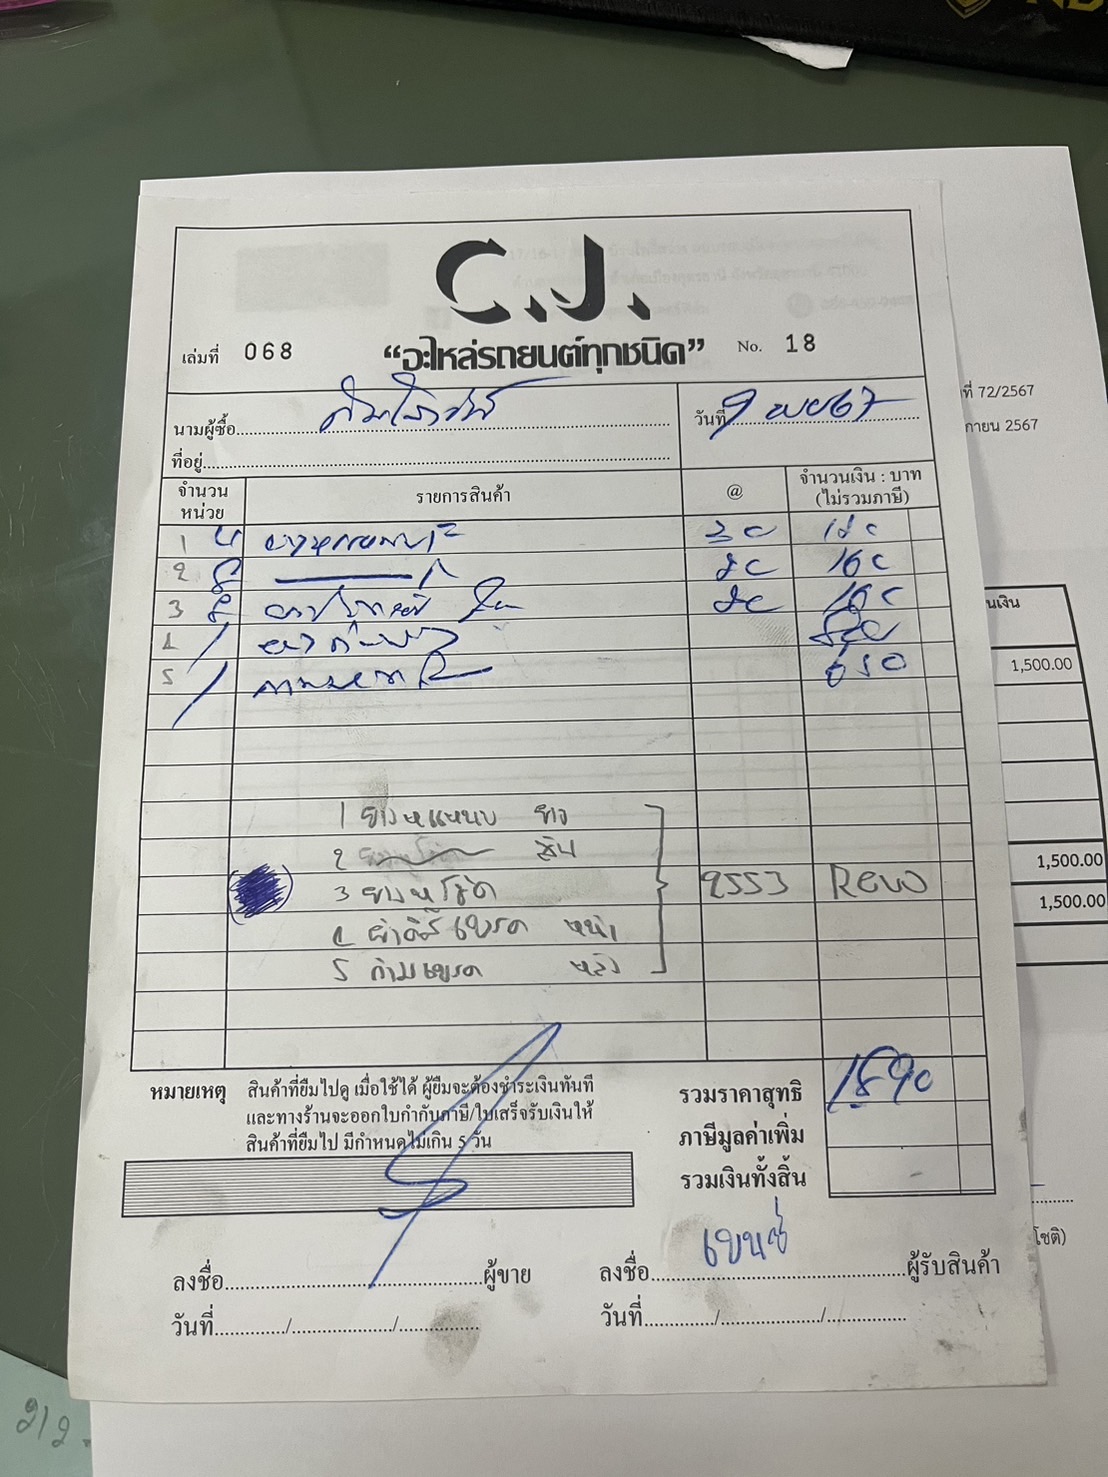 C.J.
เล่มที่ 068 "อะไหล่รถยนต์ทุกชนิด" No. 18
ที่ 72/2567
กายน 2567
นามผู้ซื้อ
วันที่ 9 พย 67
ที่อยู่
จำนวน หน่วย รายการสินค้า @ จำนวนเงิน : บาท (ไม่รวมภาษี)
1 4 30 120
2 8 20 160
3 8 20 160
4 1
5 1 650
นเงิน
1,500.00
1,500.00
1,500.00
1 ยางหูแหนบ ยาว
2 สั้น
3 ยางหูโช้ค
4 ผ้าดิสเบรค หน้า
5 ก้ามเบรค หลัง
9553 Revo
หมายเหตุ สินค้าที่ยืมไปดู เมื่อใช้ได้ ผู้ยืมจะต้องชำระเงินทันที
และทางร้านจะออกใบกำกับภาษี/ใบเสร็จรับเงินให้
สินค้าที่ยืมไป มีกำหนดไม่เกิน 5 วัน
รวมราคาสุทธิ 1890
ภาษีมูลค่าเพิ่ม
รวมเงินทั้งสิ้น
โชติ)
ลงชื่อ ผู้ขาย
ลงชื่อ เบนซ์ ผู้รับสินค้า
วันที่ / /
วันที่ / /